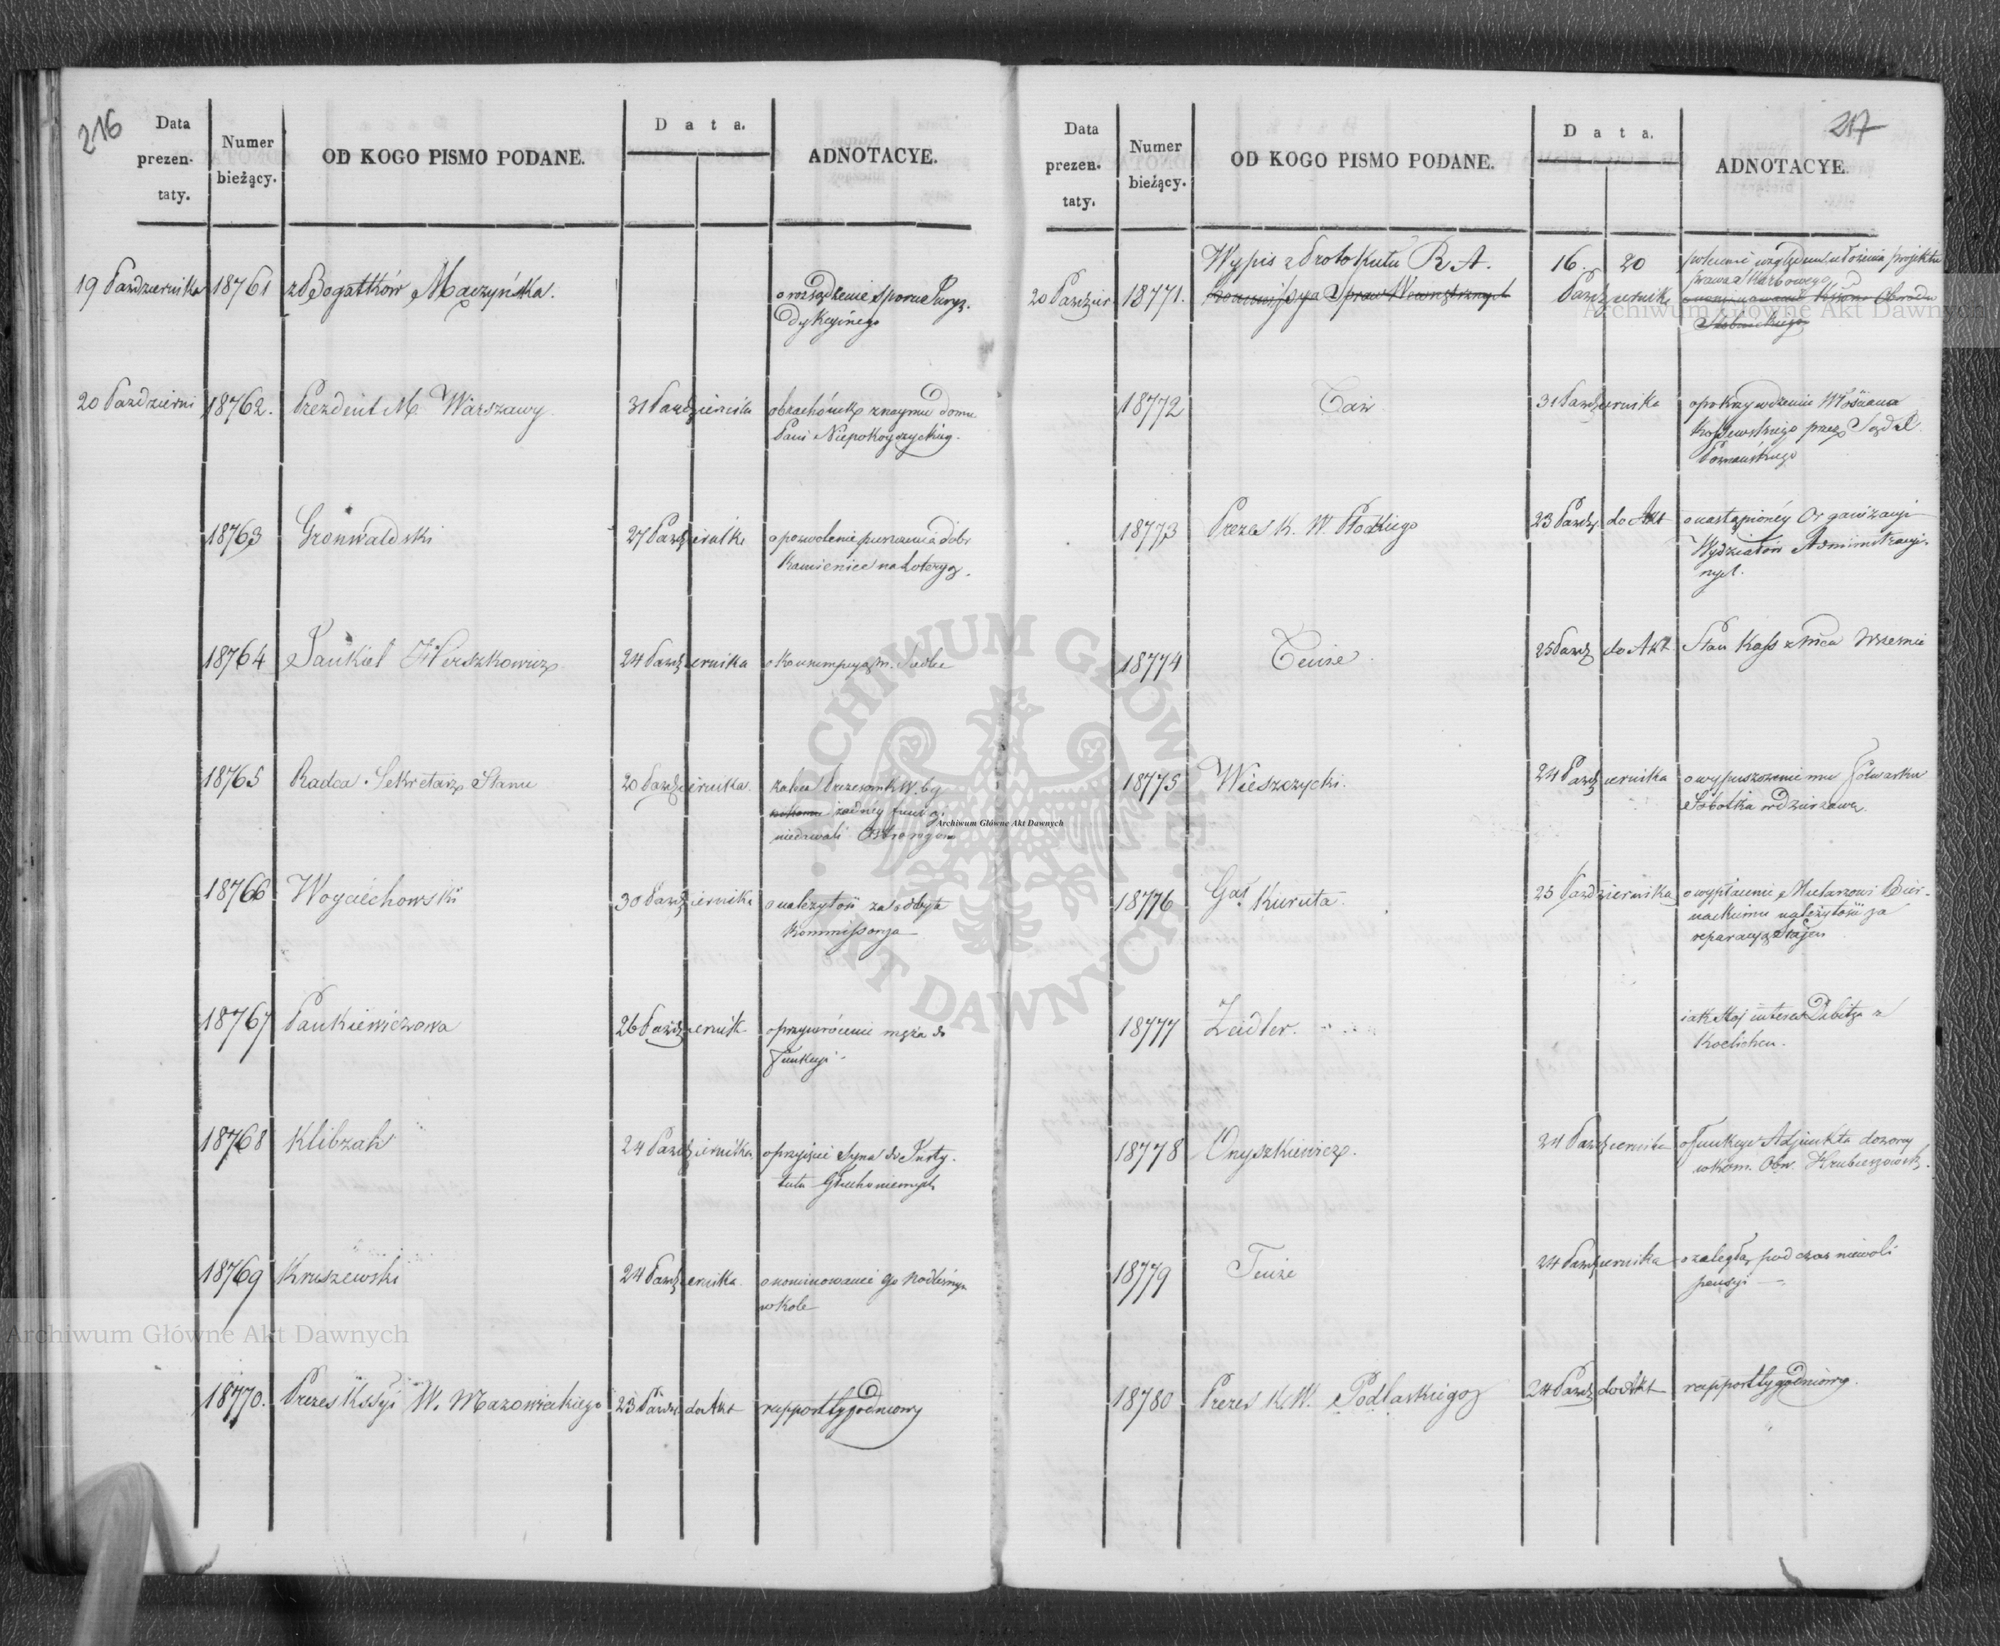 216
Data
prezen-
taty.
Numer
bieżący.
OD KOGO PISMO PODANE.
Data.
ADNOTACYE.
19 Października 18761 z Bogatków Mączyńska. o rozsądzenie sporu Juryz-
dykcyinego
20 Październi 18762. Prezdent M. Warszawy 31 Października obrachónek z naymu domu
Pani Niepokoyczyckiey.
18763 Gronwaldski 27 Października o pozwolenie puszczenia dobr
Kamienice na Loteryą.
18764 Jankiel Herszkowicz 24 Października o konsumpcyą m. Siedlec
18765 Radca Sekretarz Stanu 20 Października. zaleca Prezesom K.W. by
żadnéy funkcyi
niedawali Ostrorogowi
18766 Woyciechowski 30 Października o należytość za odbytą
Kommissorja
18767 Pankiewiczowa 26 Październik o przywrócenie męża do
funkcyi
18768 Klibzah 24 Października o przyięcie syna do Insty-
tutu Głuchoniemych
18769 Kruszewski 24 Października o nominowanie go Podleśnym
w Kole
18770. Prezes Kssyi W. Mazowieckiego 23 Paźdz do Akt rapport tygodniowy
217
Data
prezen-
taty.
Numer
bieżący.
OD KOGO PISMO PODANE.
Data.
ADNOTACYE.
Wypis z Protokułu R. A. 16. 20 polecenie względem ułożenia projektu
prawa skarbowego
20 Paździer 18771. Kommissya Spraw Wewnętrznych Październik
18772 Taż 31 Października o pokrzywdzenie
przez Sąd
Poznańskiego
18773 Prezes K. W. Płockiego 23 Paźdz. do Akt o nastąpionéy Organizacyi
Wydziałów Administracyi-
nych.
18774 Tenże 25 Paźdz do Akt Stan Kass z mca Wrześnie
18775 Wieszczycki. 24 Października o wypuszczenie mu folwarku
Sobotka w dzierżawę
18776 Gał Kuruta. 25 Października o wypłacenie Mularzowi Bier-
nackiemu należytości za
reparacyą Stajen
18777 Zeidler. iak stoj interes Dibitza z
Koelichen.
18778 Onyszkiewicz. 24 Października o funkcyę Adjunkta dozorcy
w kom. Obw. Hrubieszowsk.
18779 Tenże 24 Października o zaległą podczas niewoli
pensyi
18780 Prezes K.W. Podlaskiego 24 Paźdz do Akt rapport tygodniowy.
Archiwum Główne Akt Dawnych
Archiwum Główne Akt Dawnych
Archiwum Główne Akt Dawnych
ARCHIWUM GŁÓWNE AKT DAWNYCH